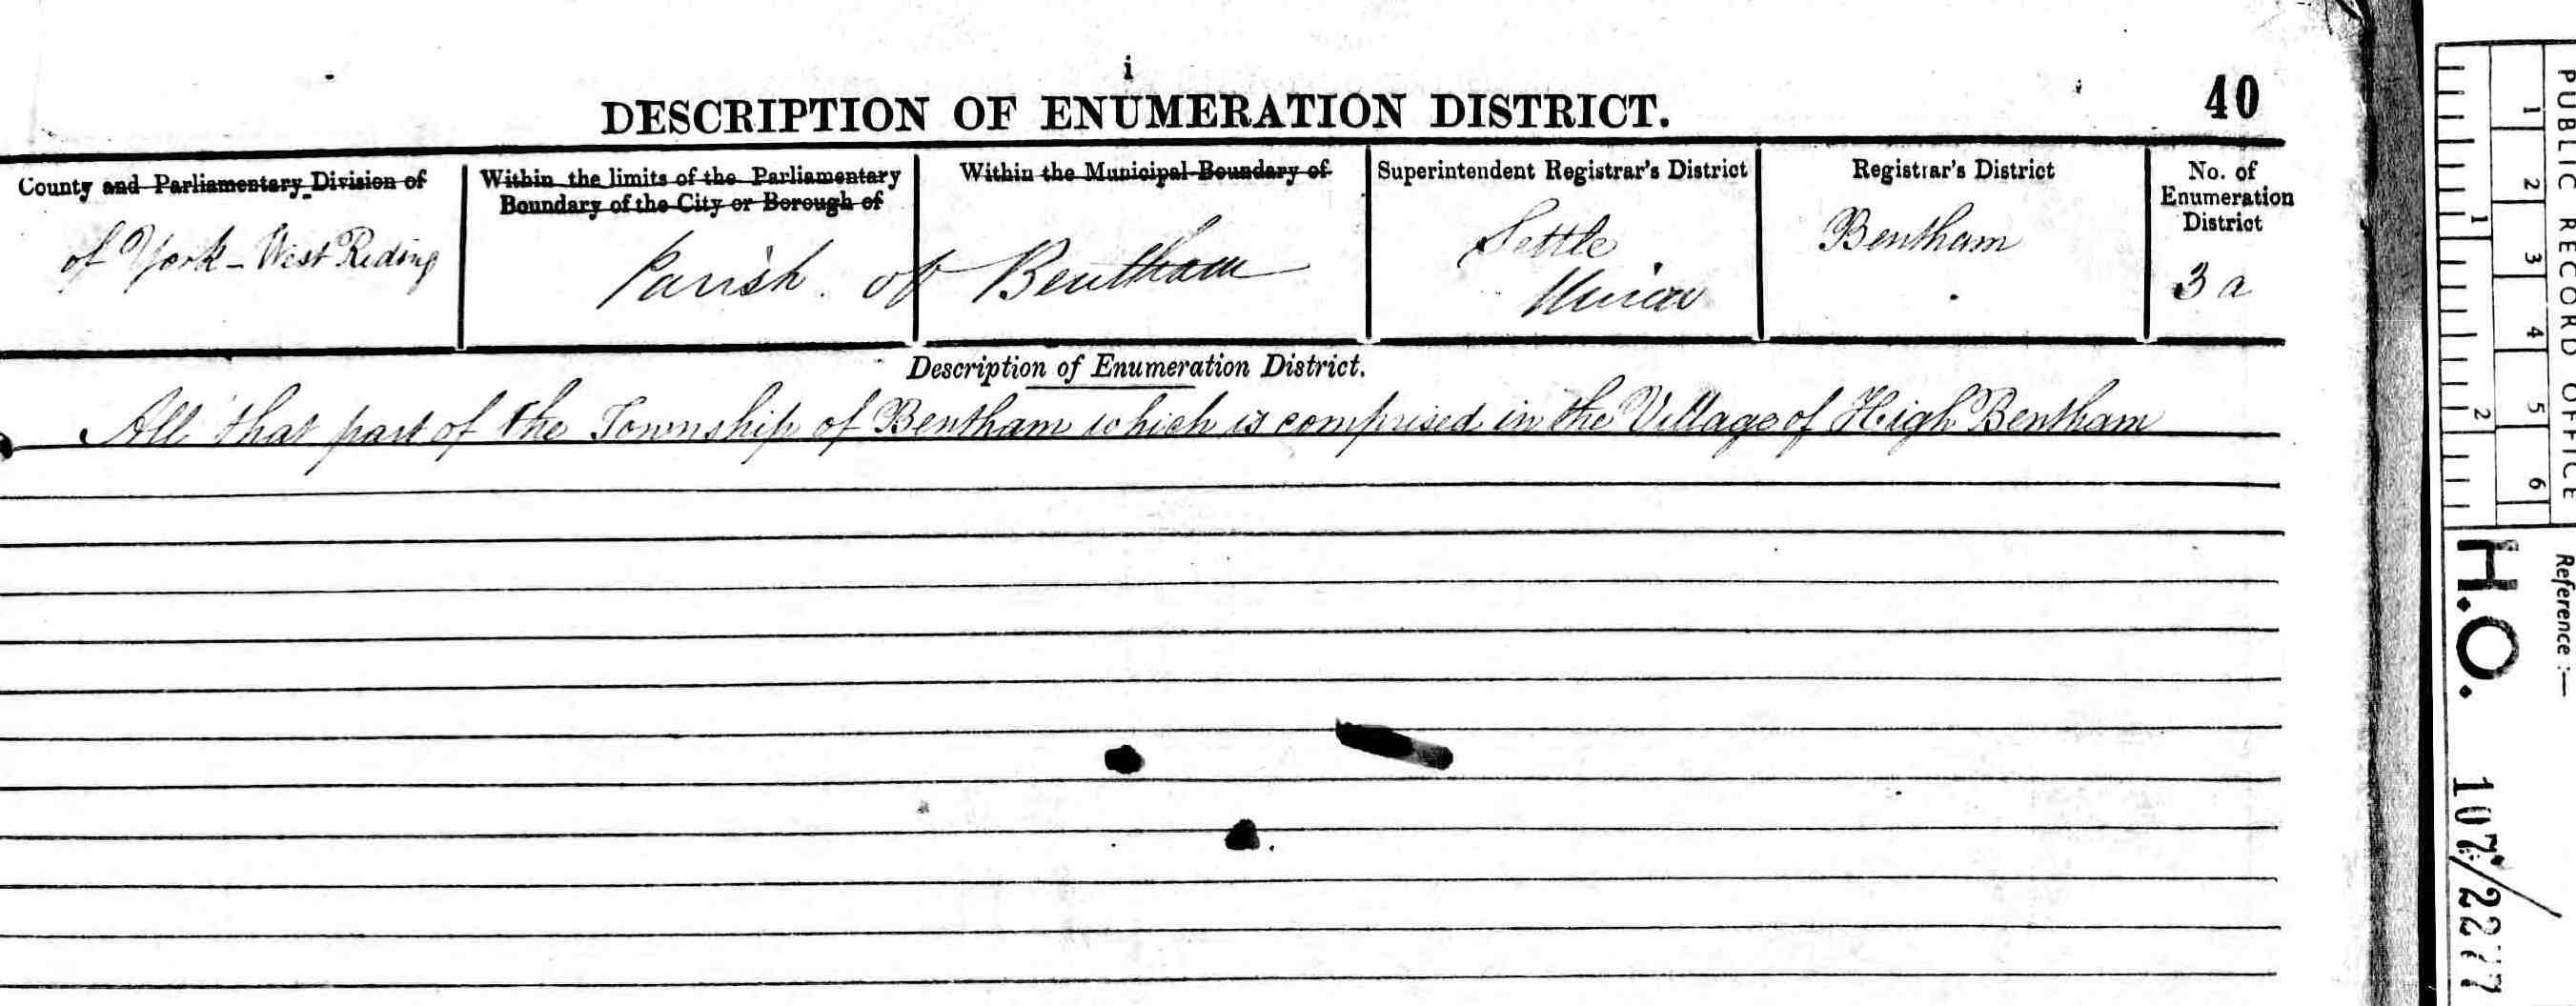 i
DESCRIPTION OF ENUMERATION DISTRICT.
40
County and Parliamentary Division of
of York - West Riding
Within the limits of the Parliamentary
Boundary of the City or Borough of
Within the Municipal Boundary of
Parish of Bentham
Superintendent Registrar's District
Settle
Union
Registrar's District
Bentham
No. of
Enumeration
District
3 a
Description of Enumeration District.
All that part of the Township of Bentham which is comprised in the Village of High Bentham
PUBLIC RECORD OFFICE
1 2 3 4 5 6
1 2
Reference :-
H.O. 107/2277